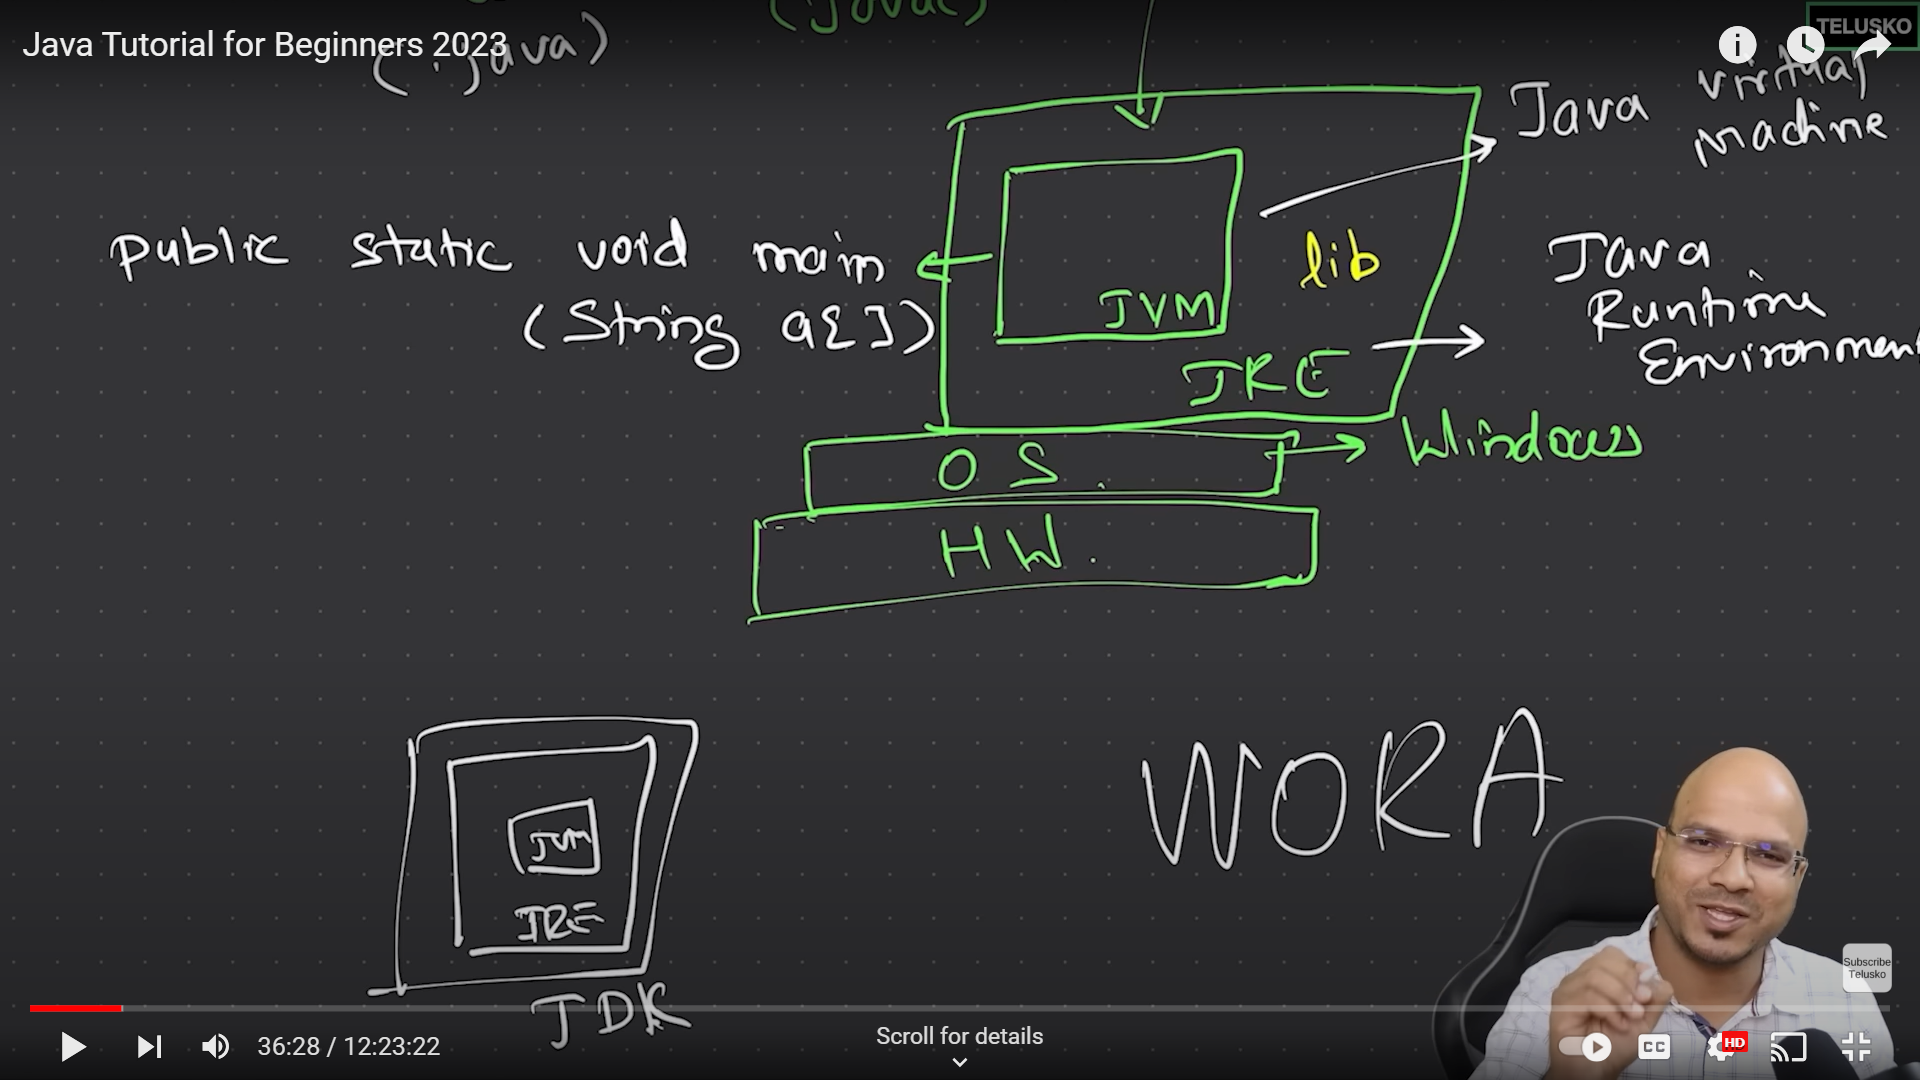 (Javac)
TELUSKO
Java Tutorial for Beginners 2023
(.java)
Java Virtual
Machine
public static void main
(String a[])
lib
JVM
Java
Runtime
Environment
JRE
OS.
Windows
HW.
WORA
JVM
JRE
JDK
Subscribe
Telusko
36:28 / 12:23:22
Scroll for details
CC
HD